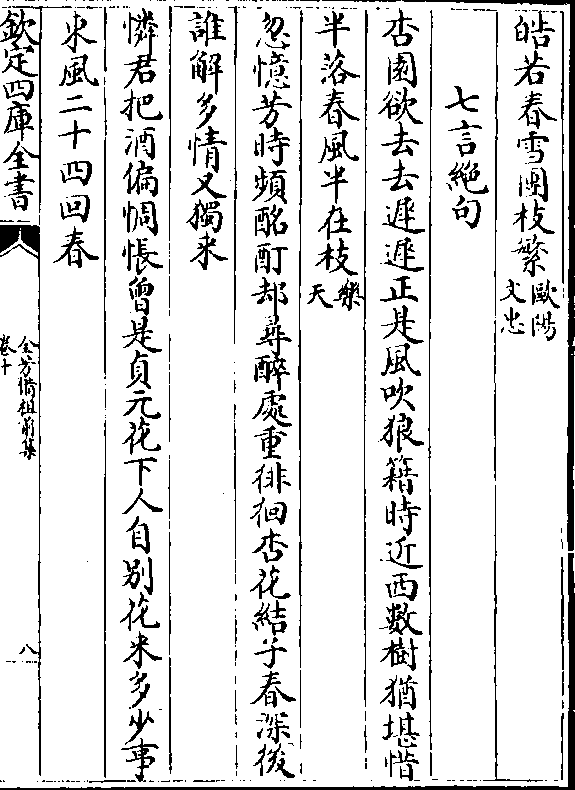 皓若春雪團枝繁歐陽文忠
七言絶句
杏園欲去去遲遲正是風吹狼籍時近西數樹猶堪惜
半落春風半在枝樂天
忽憶芳時頻酩酊却尋醉處重徘徊杏花結子春深後
誰解多情又獨來
憐君把酒偏惆悵曾是貞元花下人自别花來多少事
東風二十四回春
欽定四庫全書
全芳備祖前集
卷十
八